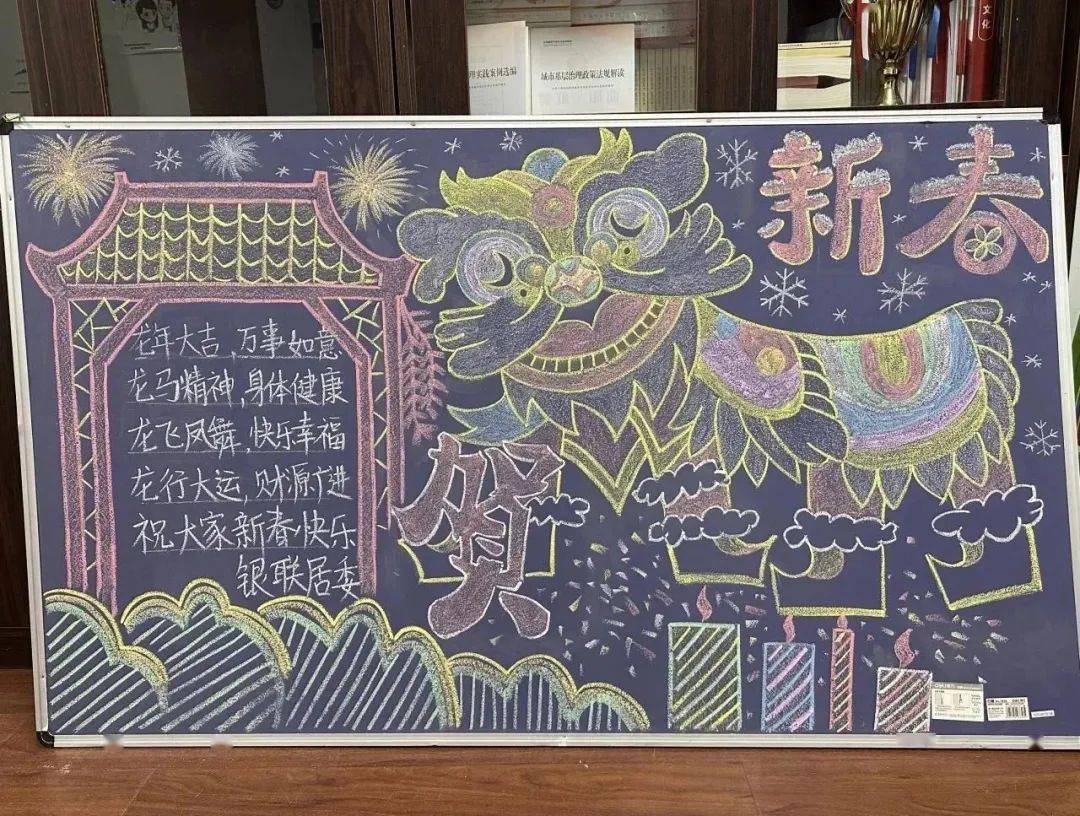 理实践案例选编
城市基层治理政策法规解读
文化
新春
贺
龙年大吉,万事如意
龙马精神,身体健康
龙飞凤舞,快乐幸福
龙行大运,财源广进
祝大家新春快乐
银联居委